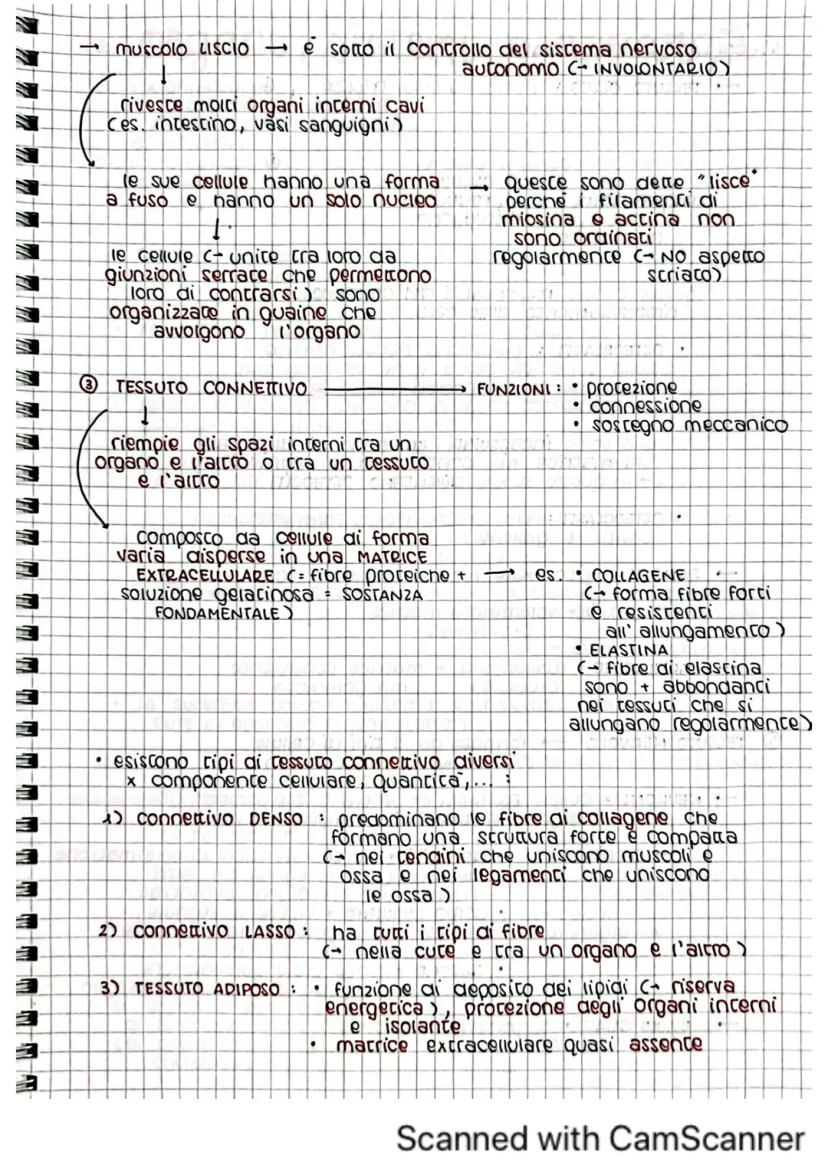 → muscolo LISCIO → è sotto il controllo del sistema nervoso
autonomo (→ INVOLONTARIO)
rivesce molti organi interni cavi
(es. intestino, vasi sanguigni)
le sue cellule hanno una forma
a fuso e hanno un solo nucleo
→ queste sono dette "lisce"
perché i filamenti di
miosina e actina non
sono ordinati
regolarmente (→ NO aspetto
striato)
le cellule (→ unite tra loro da
giunzioni serrate che permettono
loro di contrarsi) sono
organizzate in guaine che
avvolgono l'organo
③ TESSUTO CONNETTIVO → FUNZIONI: • protezione
• connessione
• sostegno meccanico
riempie gli spazi interni tra un
organo e l'altro o tra un tessuto
e l'altro
composto da cellule di forma
varia disperse in una MATRICE
EXTRACELLULARE (= fibre proteiche +
soluzione gelatinosa = SOSTANZA
FONDAMENTALE)
→ es. • COLLAGENE
(→ forma fibre forti
e resistenti
all'allungamento)
• ELASTINA
(→ fibre di elastina
sono + abbondanti
nei tessuti che si
allungano regolarmente)
• esistono tipi di tessuto connettivo diversi
x componente cellulare, quantità,... :
1) connettivo DENSO : predominano le fibre di collagene che
formano una struttura forte e compatta
(→ nei tendini che uniscono muscoli e
ossa e nei legamenti che uniscono
le ossa)
2) connettivo LASSO : ha tutti i tipi di fibre
(→ nella cute e tra un organo e l'altro)
3) TESSUTO ADIPOSO : • funzione di deposito dei lipidi (→ riserva
energetica), protezione degli organi interni
e isolante
• matrice extracellulare quasi assente
Scanned with CamScanner